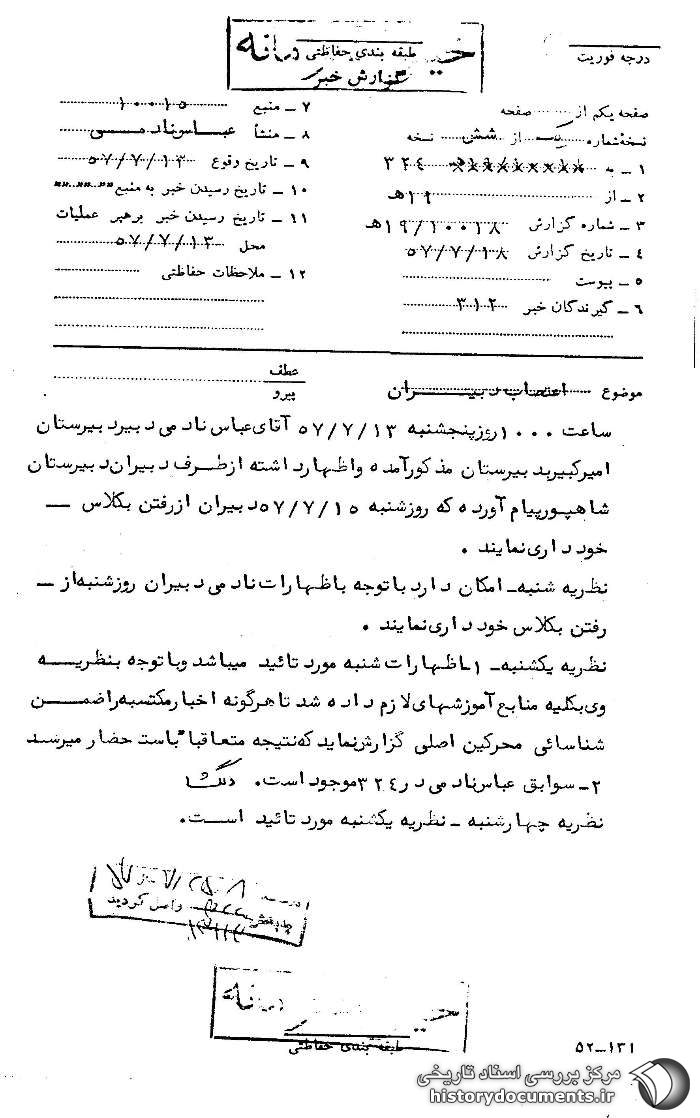 درجه فوریت
طبقه بندی حفاظتی
خیلی محرمانه
گزارش خبر
صفحه یکم از صفحه
نسخه شماره از شش نسخه
۱ ـ به ۳۲۴
۲ ـ از ۱۹هـ
۳ ـ شماره گزارش ۱۹/۱۰۰۱۸هـ
۴ ـ تاریخ گزارش ۵۷/۷/۱۸
۵ ـ پیوست
۶ ـ گیرندگان خبر ۳۱۲
۷ ـ منبع ۱۰۰۱۵
۸ ـ منشأ عباس نادمی
۹ ـ تاریخ وقوع ۵۷/۷/۱۳
۱۰ ـ تاریخ رسیدن خبر به منبع " " " "
۱۱ ـ تاریخ رسیدن خبر برهبر عملیات
محل ۵۷/۷/۱۳
۱۲ ـ ملاحظات حفاظتی
موضوع اعتصاب دبیران
عطف
پیرو
ساعت ۱۰۰۰ روزپنجشنبه ۵۷/۷/۱۳ آقای عباس نادمی دبیردبیرستان
امیرکبیربدبیرستان مذکورآمده واظهارداشته ازطرف دبیران دبیرستان
شاهپورپیام آورده که روزشنبه ۵۷/۷/۱۵ دبیران ازرفتن بکلاس ـ
خودداری نمایند .
نظریه شنبه ـ امکان دارد باتوجه باظهارات نادمی دبیران روزشنبه از ـ
رفتن بکلاس خودداری نمایند .
نظریه یکشنبه ـ ۱ـ اظهارات شنبه مورد تائید میباشد وباتوجه بنظریه
وی بکلیه منابع آموزشهای لازم داده شد تاهرگونه اخبارمکتسبه راضمن
شناسائی محرکین اصلی گزارش نماید که نتیجه متعاقبا" باستحضار میرسد
۲ ـ سوابق عباس نادمی در ۳۲۴ موجود است.
نظریه چهارشنبه ـ نظریه یکشنبه مورد تائید است.
واصل گردید
طبقه بندی حفاظتی
۵۲ـ۱۳۱
مرکز بررسی اسناد تاریخی
historydocuments.ir